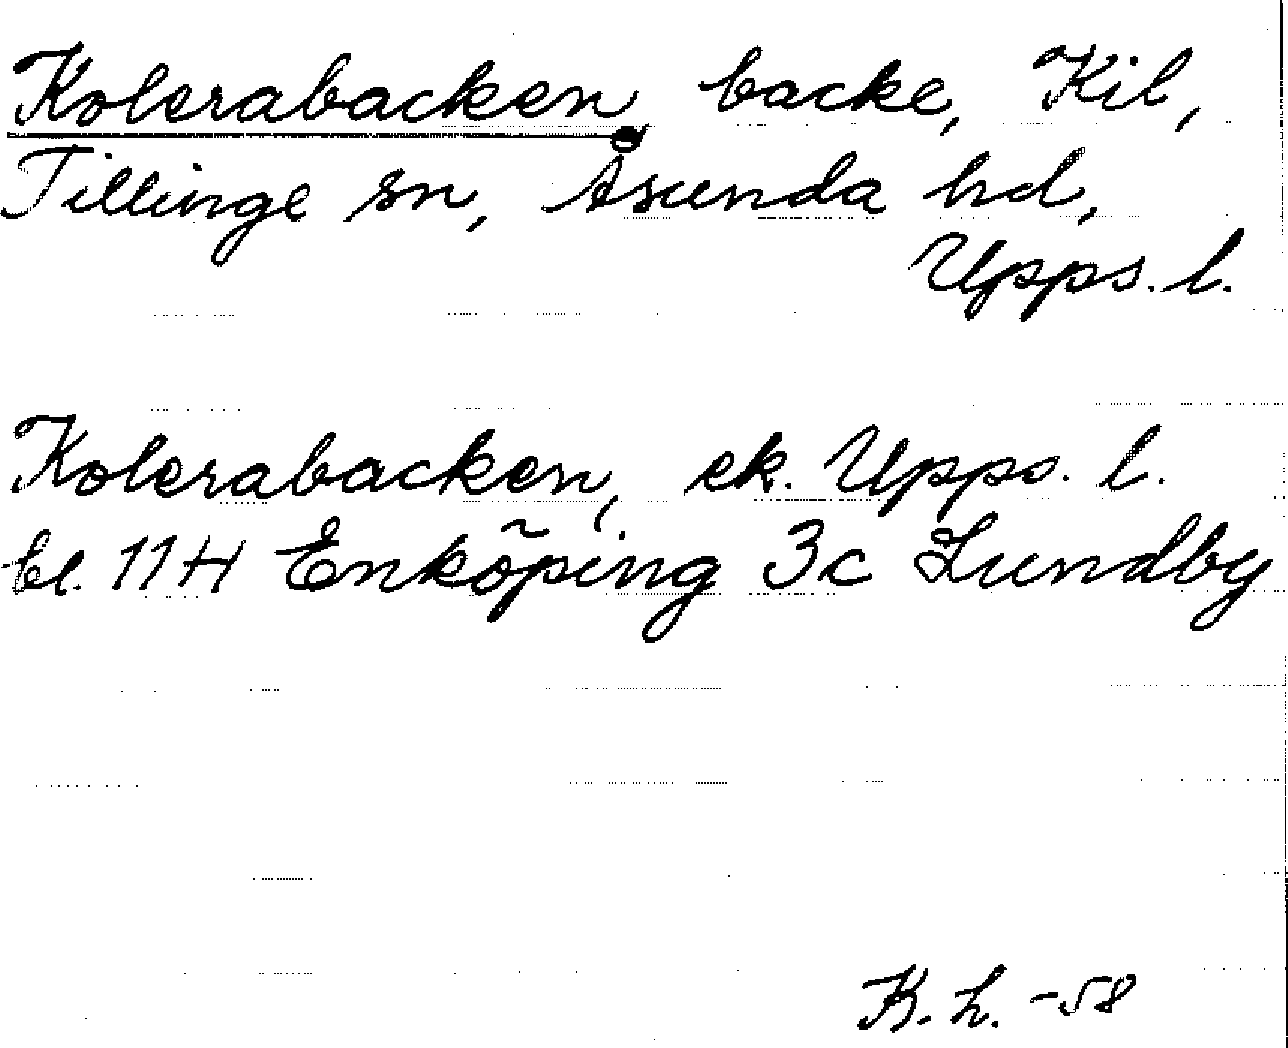 Kolerabacken, backe, Kil,
Tillinge sn, Åsunda hd,
Upps. l.
Kolerabacken, ek. Upps. l.
bl. 11H Enköping 3c Lundby
K. L. -58